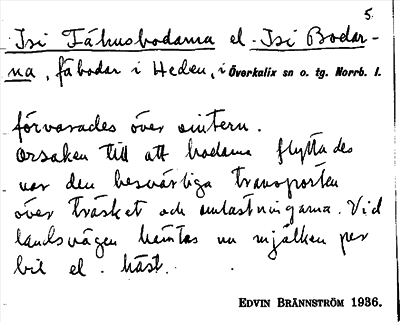 5.
Isi Fähusbodarna el. Isi Bodar-
na, fäbodar i Heden, i Överkalix sn o. tg. Norrb. l.
förvarades över vintern.
Orsaken till att bodarna flyttades
var den besvärliga transporten
över träsket och omlastningarna. Vid
landsvägen hämtas nu mjölken per
bil el. häst.
EDVIN BRÄNNSTRÖM 1936.